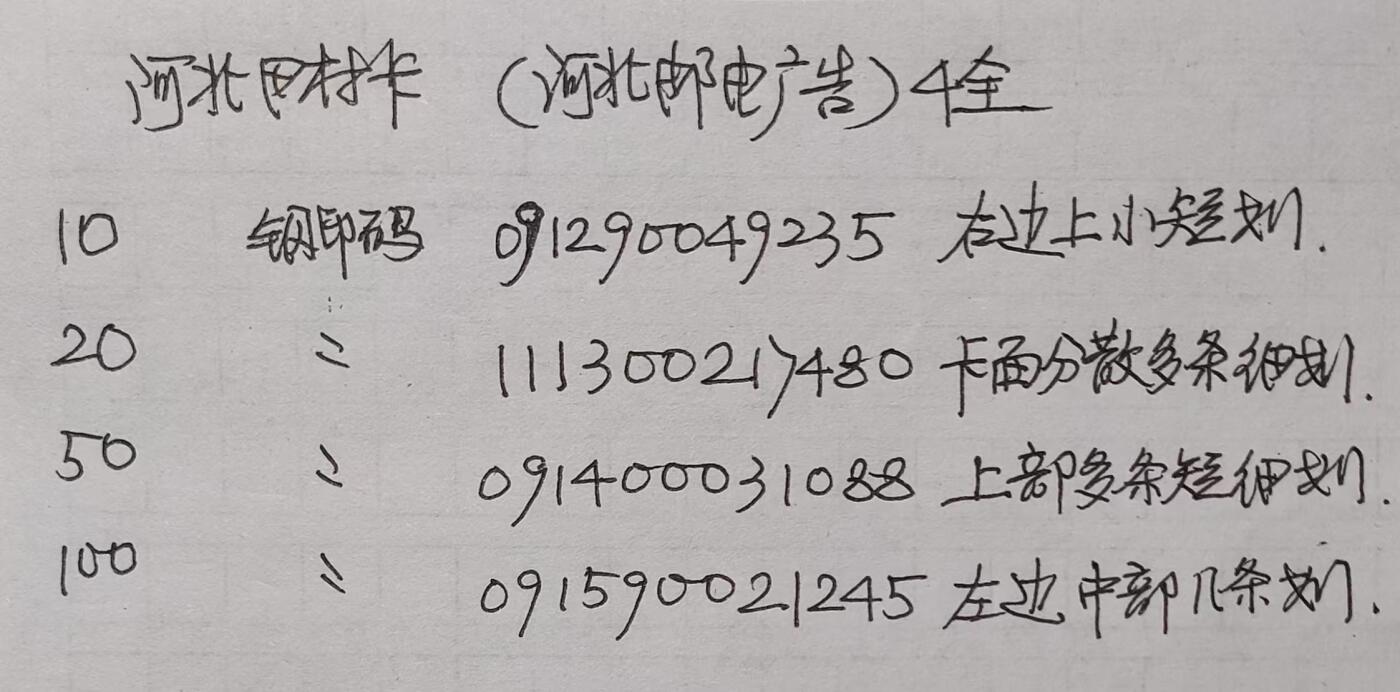 河北田村卡 (河北邮电广告) 4全
10 钢印码 091290049235 右边上小短划.
20 〃 111300217480 卡面分散多条细划.
50 〃 091400031088 上部多条短细划.
100 〃 091590021245 左边中部几条划.